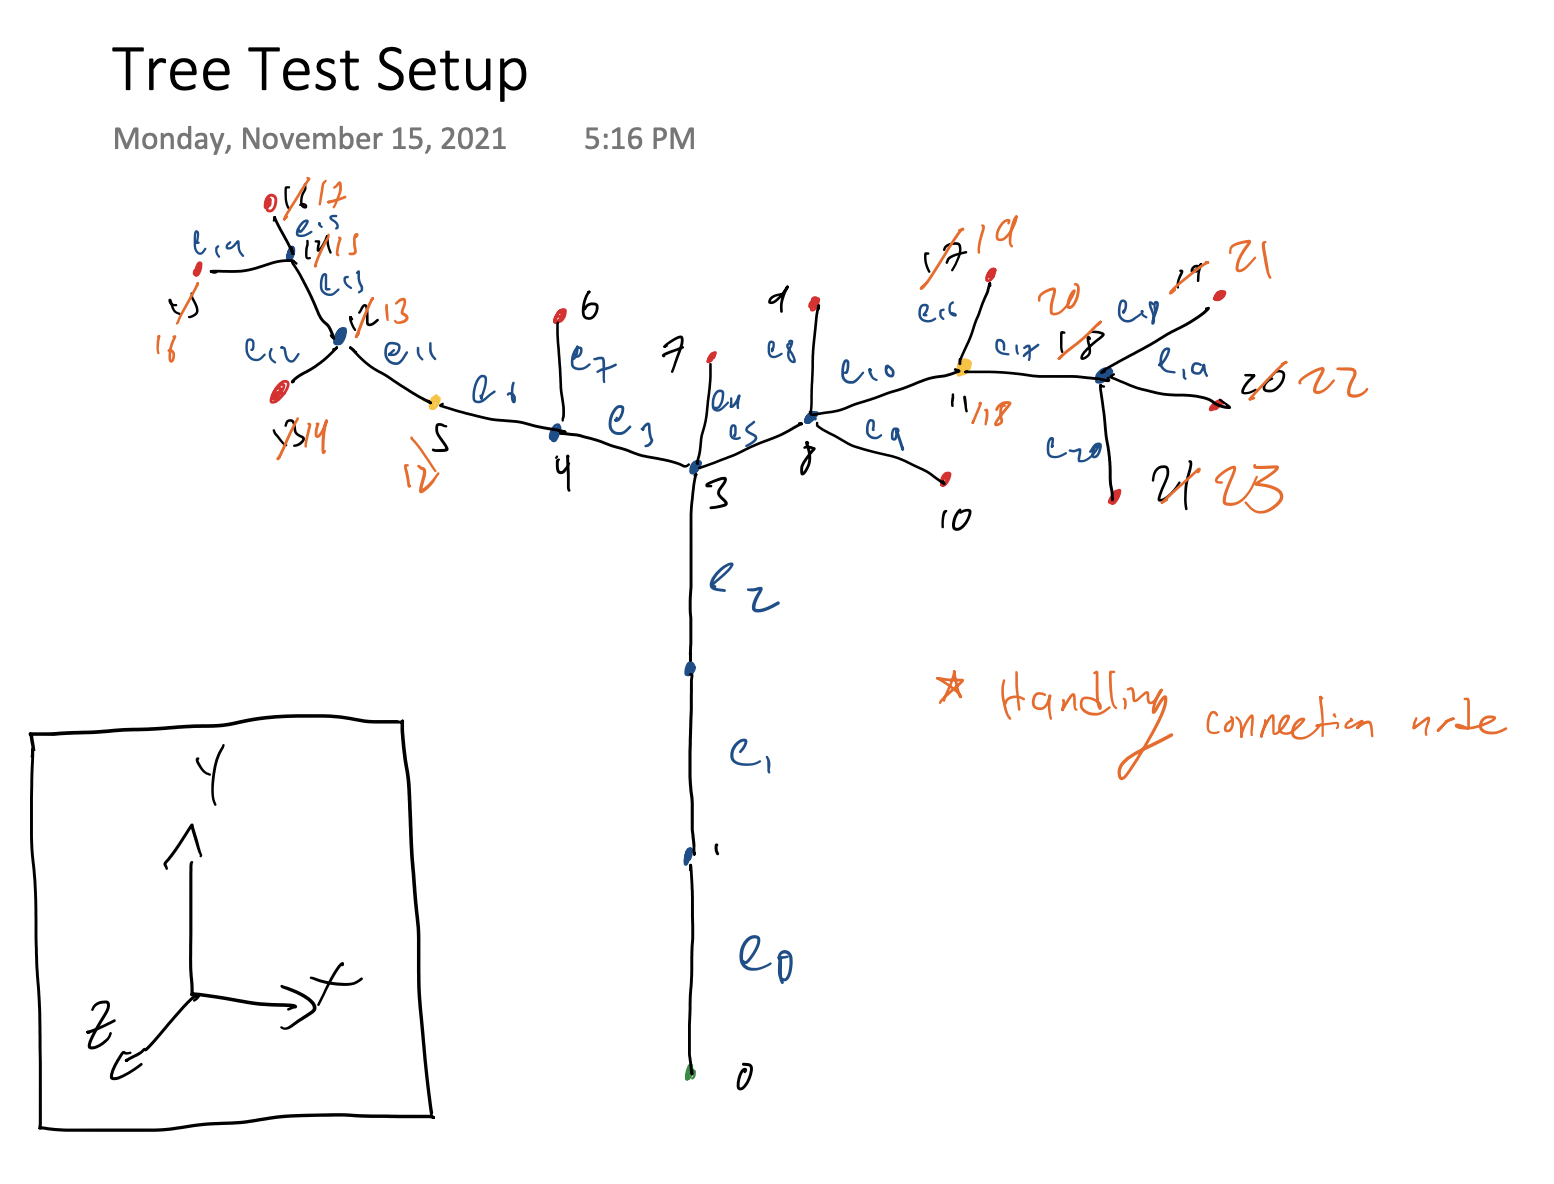 Tree Test Setup
Monday, November 15, 2021 5:16 PM
16 17
e15
14 15
e19
e13
15
16
12 13
e12
e11
13 14
e6
5
12
6
e7
e3
4
7
e4
e5
3
9
e8
8
e10
e9
10
17 19
e16
11 18
e17
20
18
e18
19 21
e19
20 22
e20
21 23
e2
* Handling connection node
e1
1
e0
0
Y
X
Z